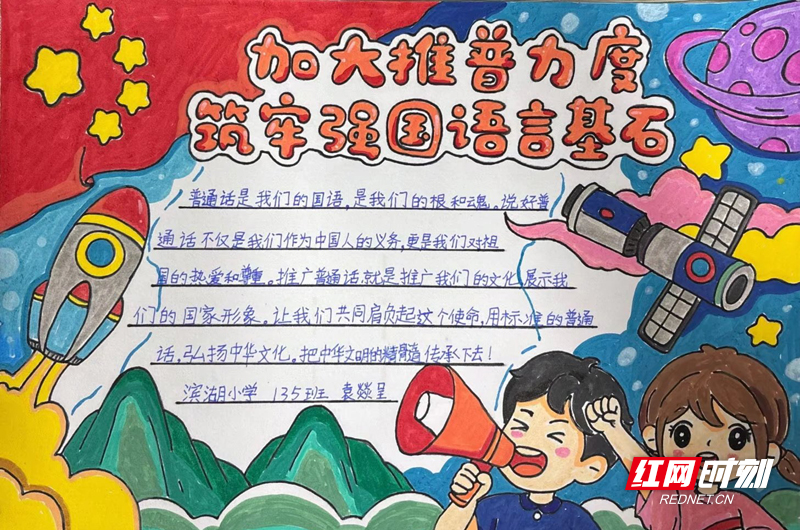 加大推普力度
筑牢强国语言基石
普通话是我们的国语,是我们的根和魂。说好普
通话不仅是我们作为中国人的义务,更是我们对祖
国的热爱和尊重。推广普通话就是推广我们的文化,展示我
们的国家形象。让我们共同肩负起这个使命,用标准的普通
话,弘扬中华文化。把中华文明的精髓传承下去!
滨湖小学 135班 袁燚呈
红网时刻
REDNET.CN